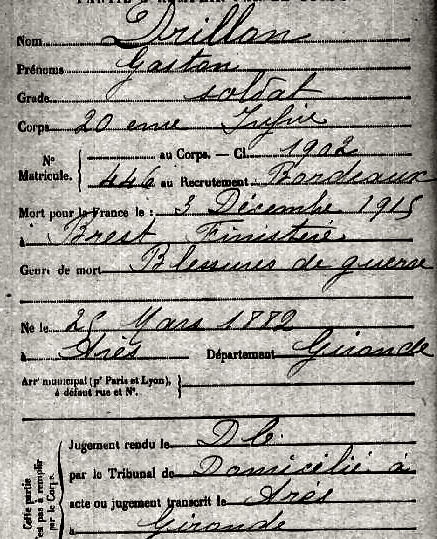 PARTIE À REMPLIR PAR LE CORPS
Nom Drillan
Prénoms Gaston
Grade soldat
Corps 20 eme Infrie
N° Matricule. { au Corps. — Cl. 1902
446 au Recrutement Bordeaux
Mort pour la France le : 3 Décembre 1915
à Brest Finistère
Genre de mort Blessures de guerre
Né le 25 Mars 1882
à Arès Département Gironde
Arrt municipal (pr Paris et Lyon), à défaut rue et N°. }
Cette partie n'est pas à remplir par le Corps. {
Jugement rendu le D C.
par le Tribunal de Domicilié à
acte ou jugement transcrit le Arés
à Gironde